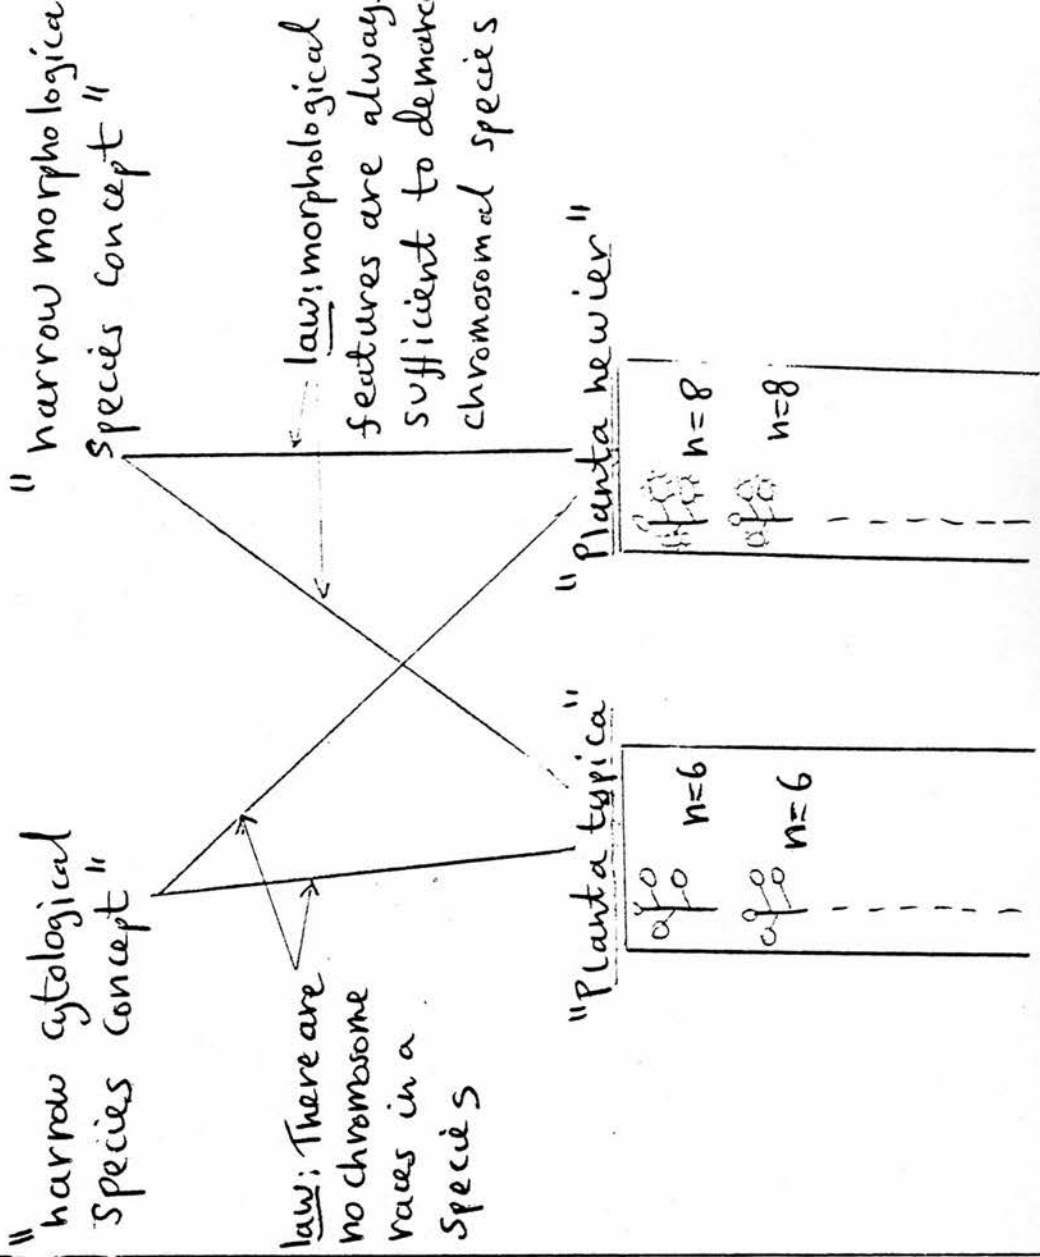 "narrow cytological
species concept"
"narrow morphologica
species concept"
law: There are
no chromosome
races in a
species
law: morphological
features are always
sufficient to demarc
chromosomal species
"Planta typica"
n=6
n=6
"Planta newier"
n=8
n=8